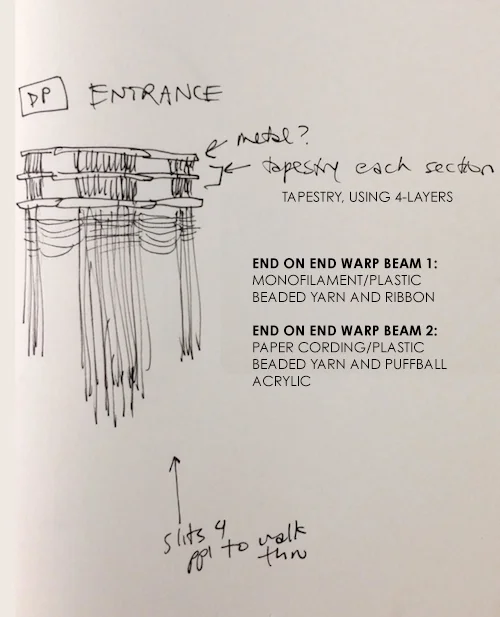 DP ENTRANCE
metal?
tapestry each section
TAPESTRY, USING 4-LAYERS
END ON END WARP BEAM 1:
MONOFILAMENT/PLASTIC
BEADED YARN AND RIBBON
END ON END WARP BEAM 2:
PAPER CORDING/PLASTIC
BEADED YARN AND PUFFBALL
ACRYLIC
slits 4
ppl to walk
thru